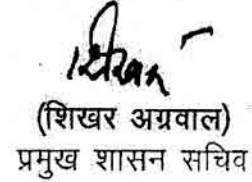 शिखर
(शिखर अग्रवाल)
प्रमुख शासन सचिव